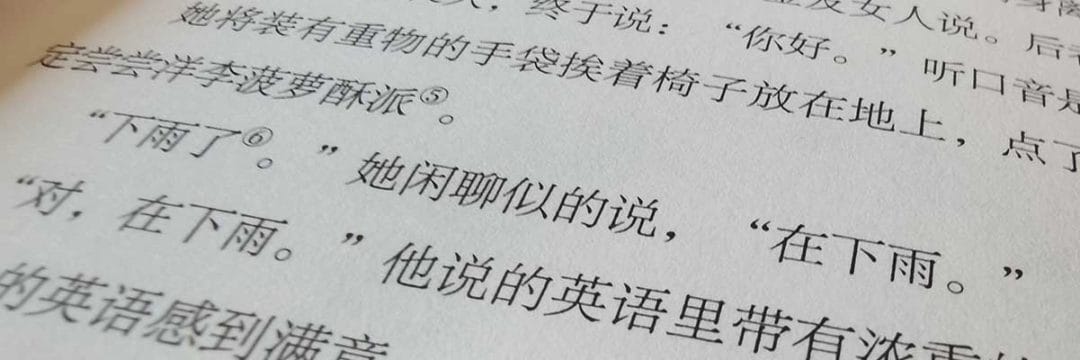 终于说：“你好。”听口音是
女人说。后
她将装有重物的手袋挨着椅子放在地上，点了
定尝尝洋李菠萝酥派⑤。
“下雨了⑥。”她闲聊似的说，“在下雨。”
“对，在下雨。”他说的英语里带有浓重
的英语感到满意